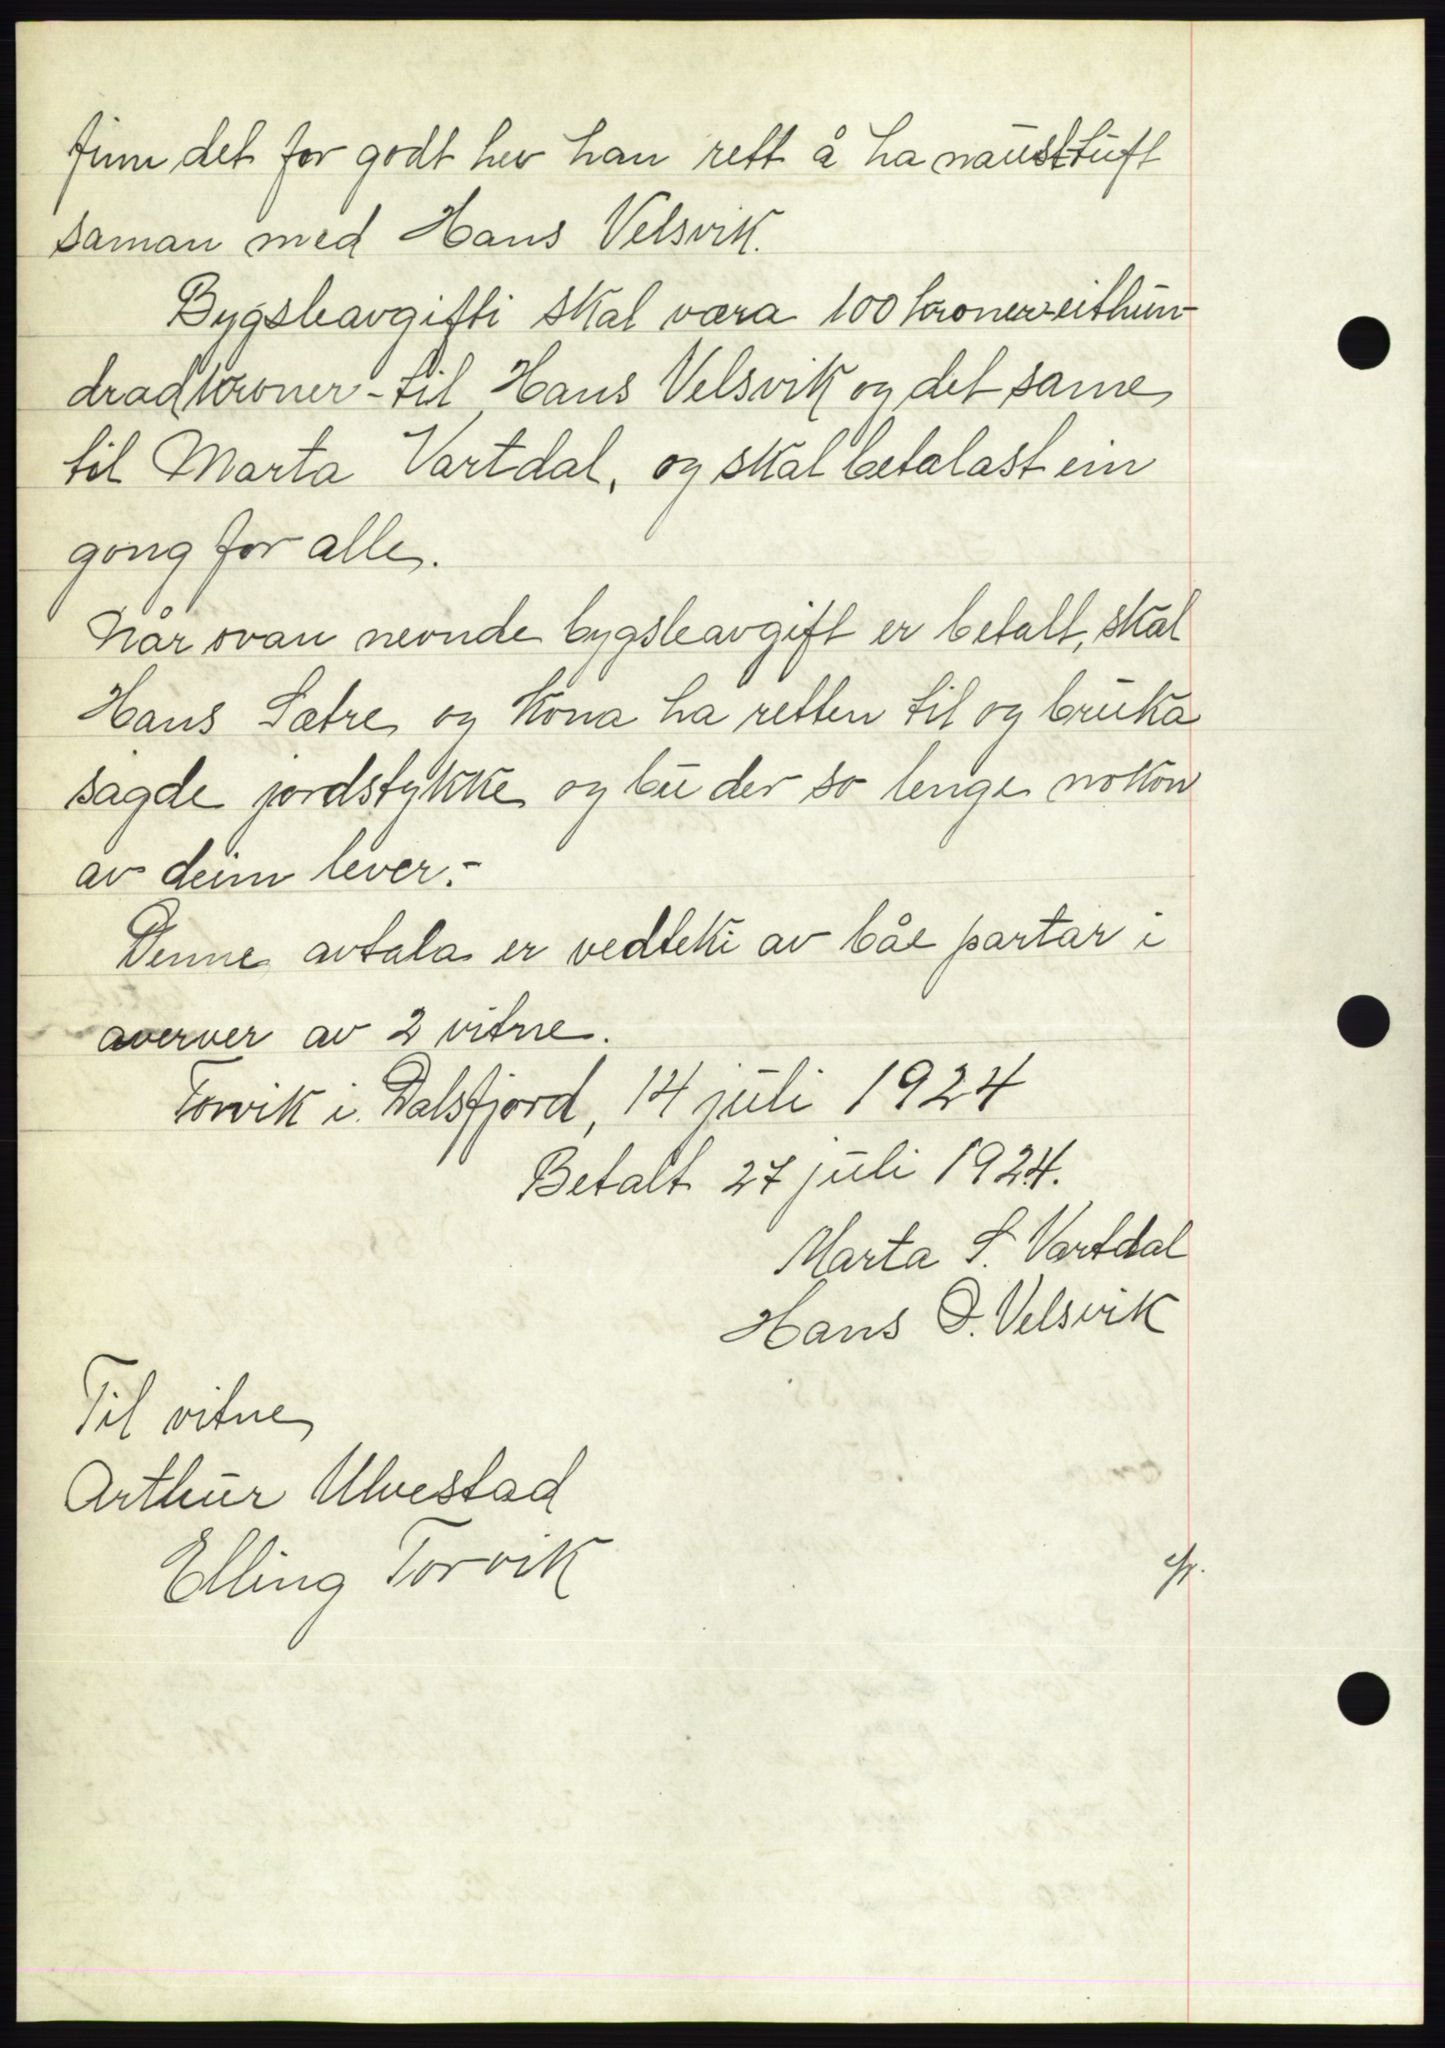 finn det for godt hev han rett å ha nausttuft
saman med Hans Velsvik.
Bygsleavgifti skal vœra 100 kroner-eithun-
dradkroner-til Hans Velsvik og det same
til Marta Vartdal, og skal betalast ein
gong for alle.
Når ovan nevnde bygsleavgift er betalt, skal
Hans Sætre og kona ha retten til og bruka
sagde jordstykke og bu der so lenge nokon
av deim lever.-
Denne avtala er vedteki av båe partar i
averver av 2 vitne.
Torvik i Dalsfjord, 14 juli 1924
Betalt 27 juli 1924.
Marta S. Vartdal
Hans D. Velsvik
Til vitne
Arthur Ulvestad
Elling Torvik